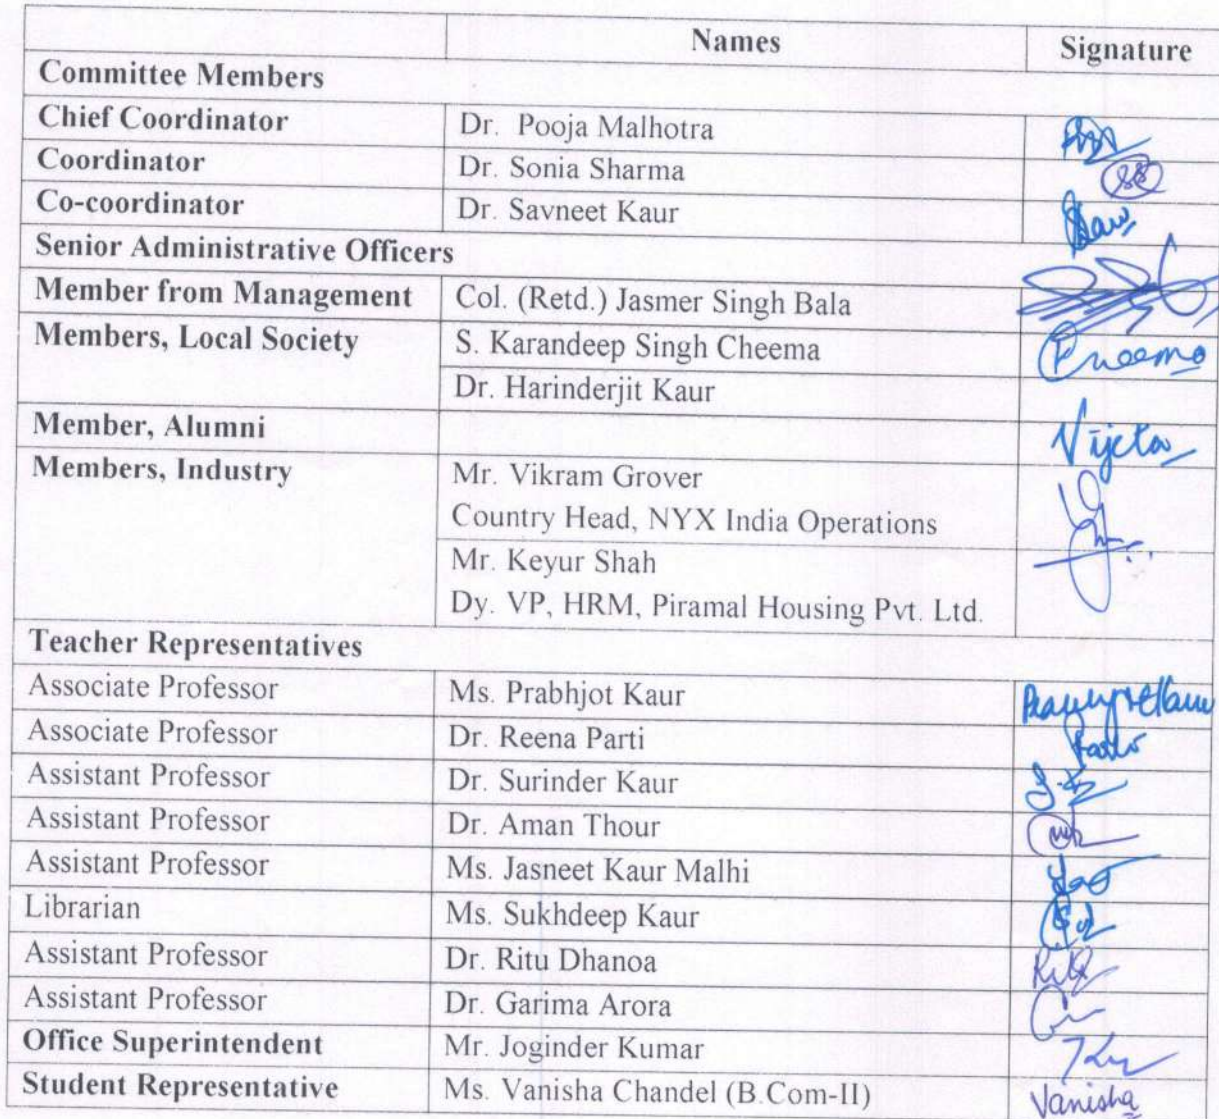 Names Signature
Committee Members
Chief Coordinator Dr. Pooja Malhotra
Coordinator Dr. Sonia Sharma
Co-coordinator Dr. Savneet Kaur
Senior Administrative Officers
Member from Management Col. (Retd.) Jasmer Singh Bala
Members, Local Society S. Karandeep Singh Cheema
Dr. Harinderjit Kaur
Member, Alumni Vijeta
Members, Industry Mr. Vikram Grover
Country Head, NYX India Operations
Mr. Keyur Shah
Dy. VP, HRM, Piramal Housing Pvt. Ltd.
Teacher Representatives
Associate Professor Ms. Prabhjot Kaur
Associate Professor Dr. Reena Parti
Assistant Professor Dr. Surinder Kaur
Assistant Professor Dr. Aman Thour
Assistant Professor Ms. Jasneet Kaur Malhi
Librarian Ms. Sukhdeep Kaur
Assistant Professor Dr. Ritu Dhanoa
Assistant Professor Dr. Garima Arora
Office Superintendent Mr. Joginder Kumar
Student Representative Ms. Vanisha Chandel (B.Com-II) Vanisha